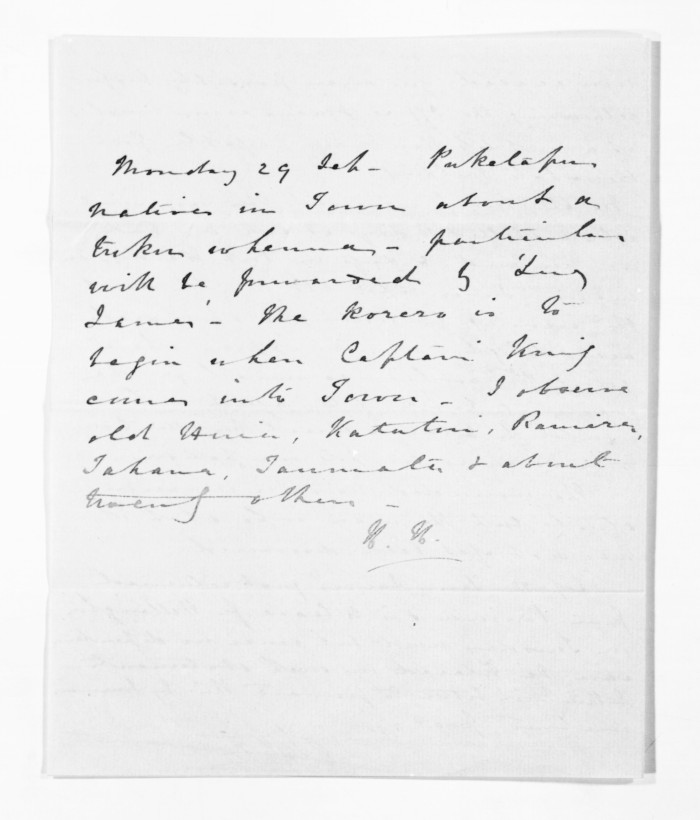 Monday 29 Feb - Puketapu
natives in Town about a
tuku whenua - particulars
will be forwarded by 'Lucy
James' - The korero is to
begin when Captain King
comes into Town - I observe
old Huia, Katatini,
Tahana, Taumata & about
twenty others -
H. H.